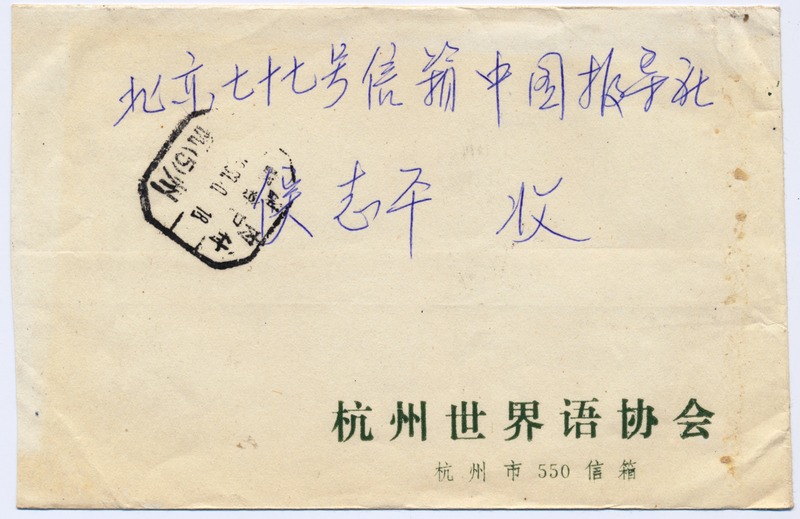 北京七十七号信箱中国报导社
侯志平 收
杭州世界语协会
杭州市550信箱